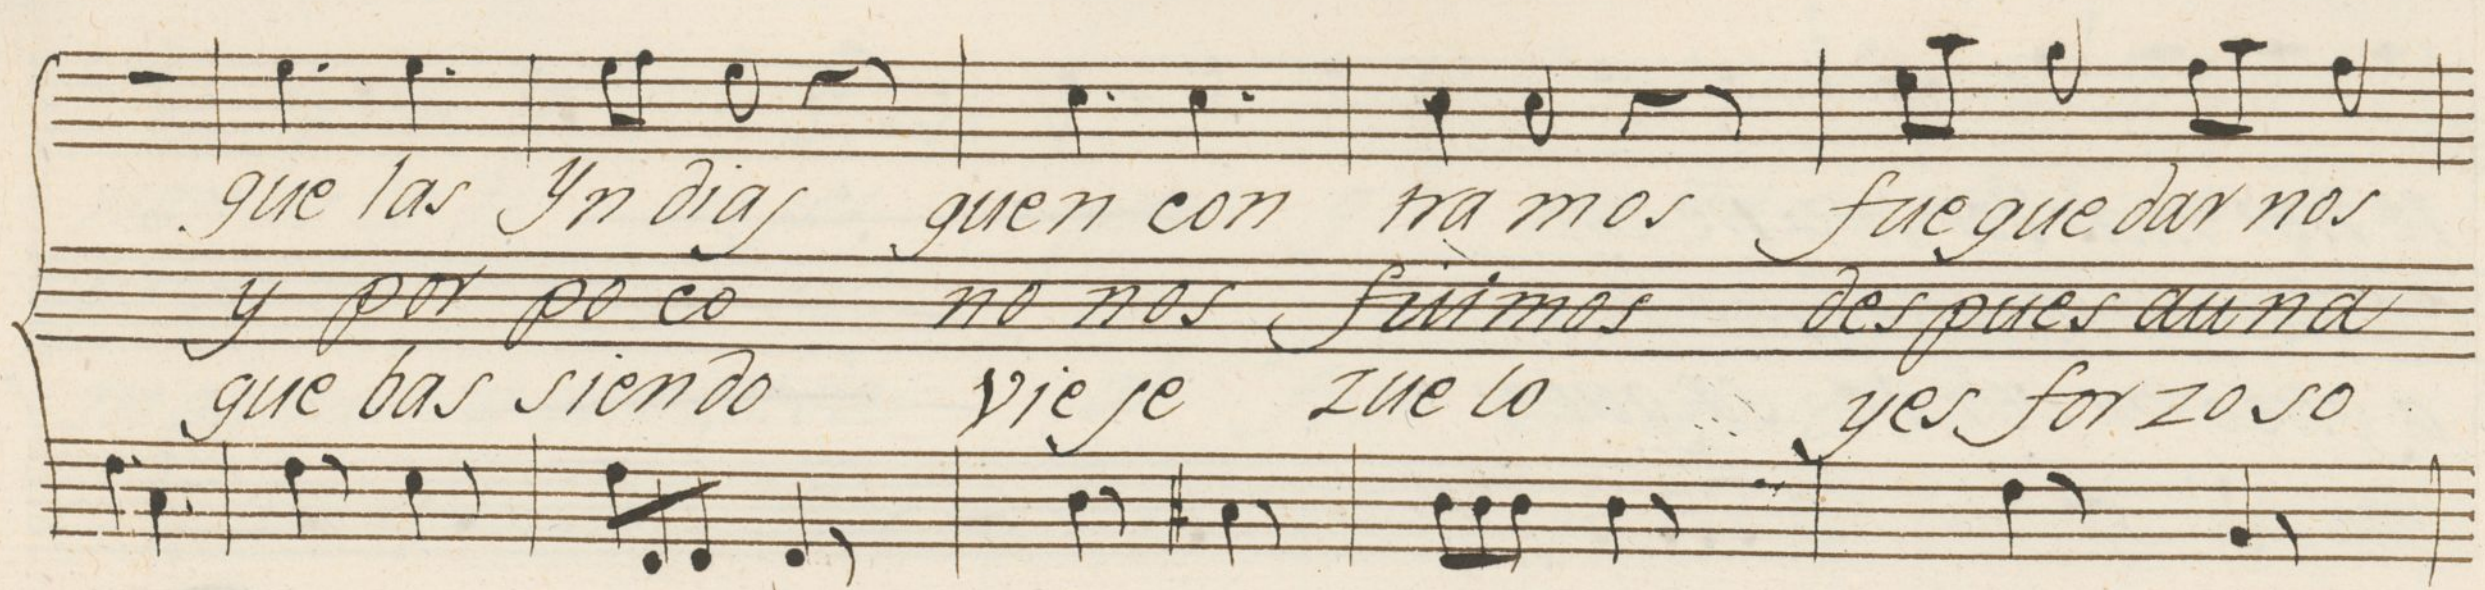 que las Yn dias quen con tra mos fue que dar nos
y por po co no nos fuimos des pues au na
que bas siendo vie se zue lo yes for zo so